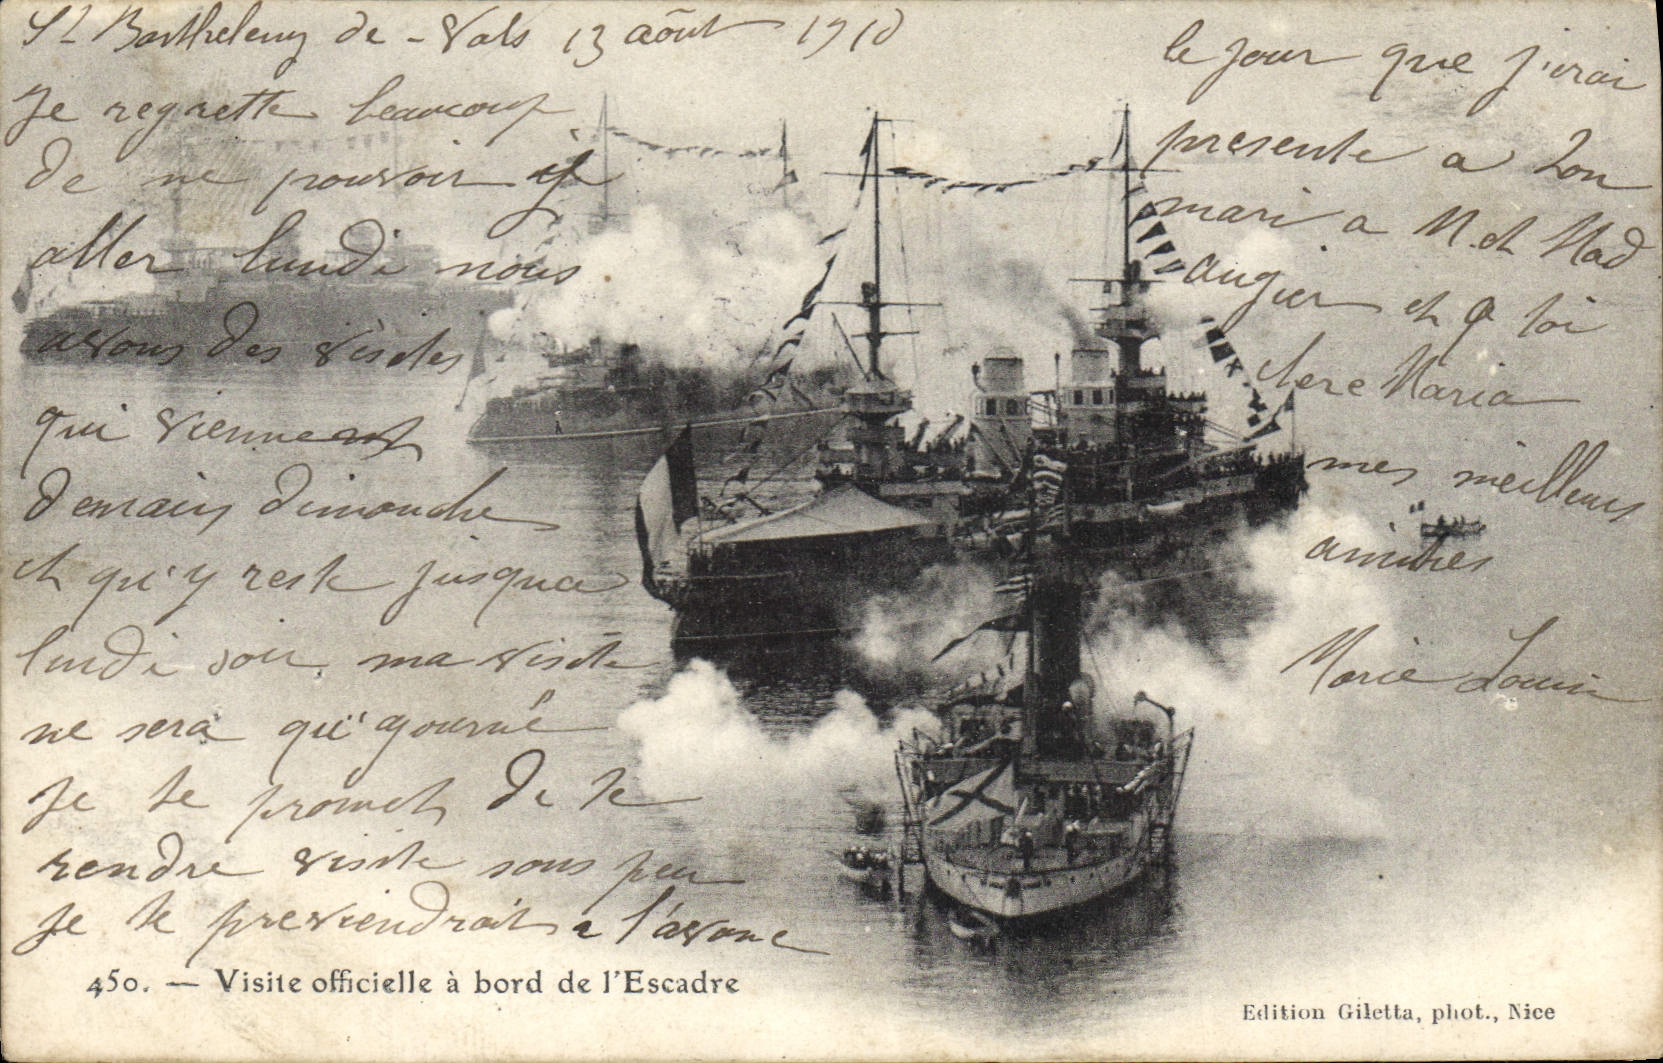 St Barthelemy de - Vals 13 août 1910
Je regrette beaucoup
de ne pouvoir y
aller lundi nous
avons des visites
qui viennent
demain dimanche
et qu'y reste jusqua
lundi soir. ma visite
ne sera qu'ajourné
Je te promet de te
rendre visite sous peu
Je te previendrait a l'avance
le jour que j'irai
presente a ton
mari a M. et Mad
augier et a toi
chere Maria
mes meilleurs
amities
Marie Louise
450. — Visite officielle à bord de l'Escadre
Edition Giletta, phot., Nice